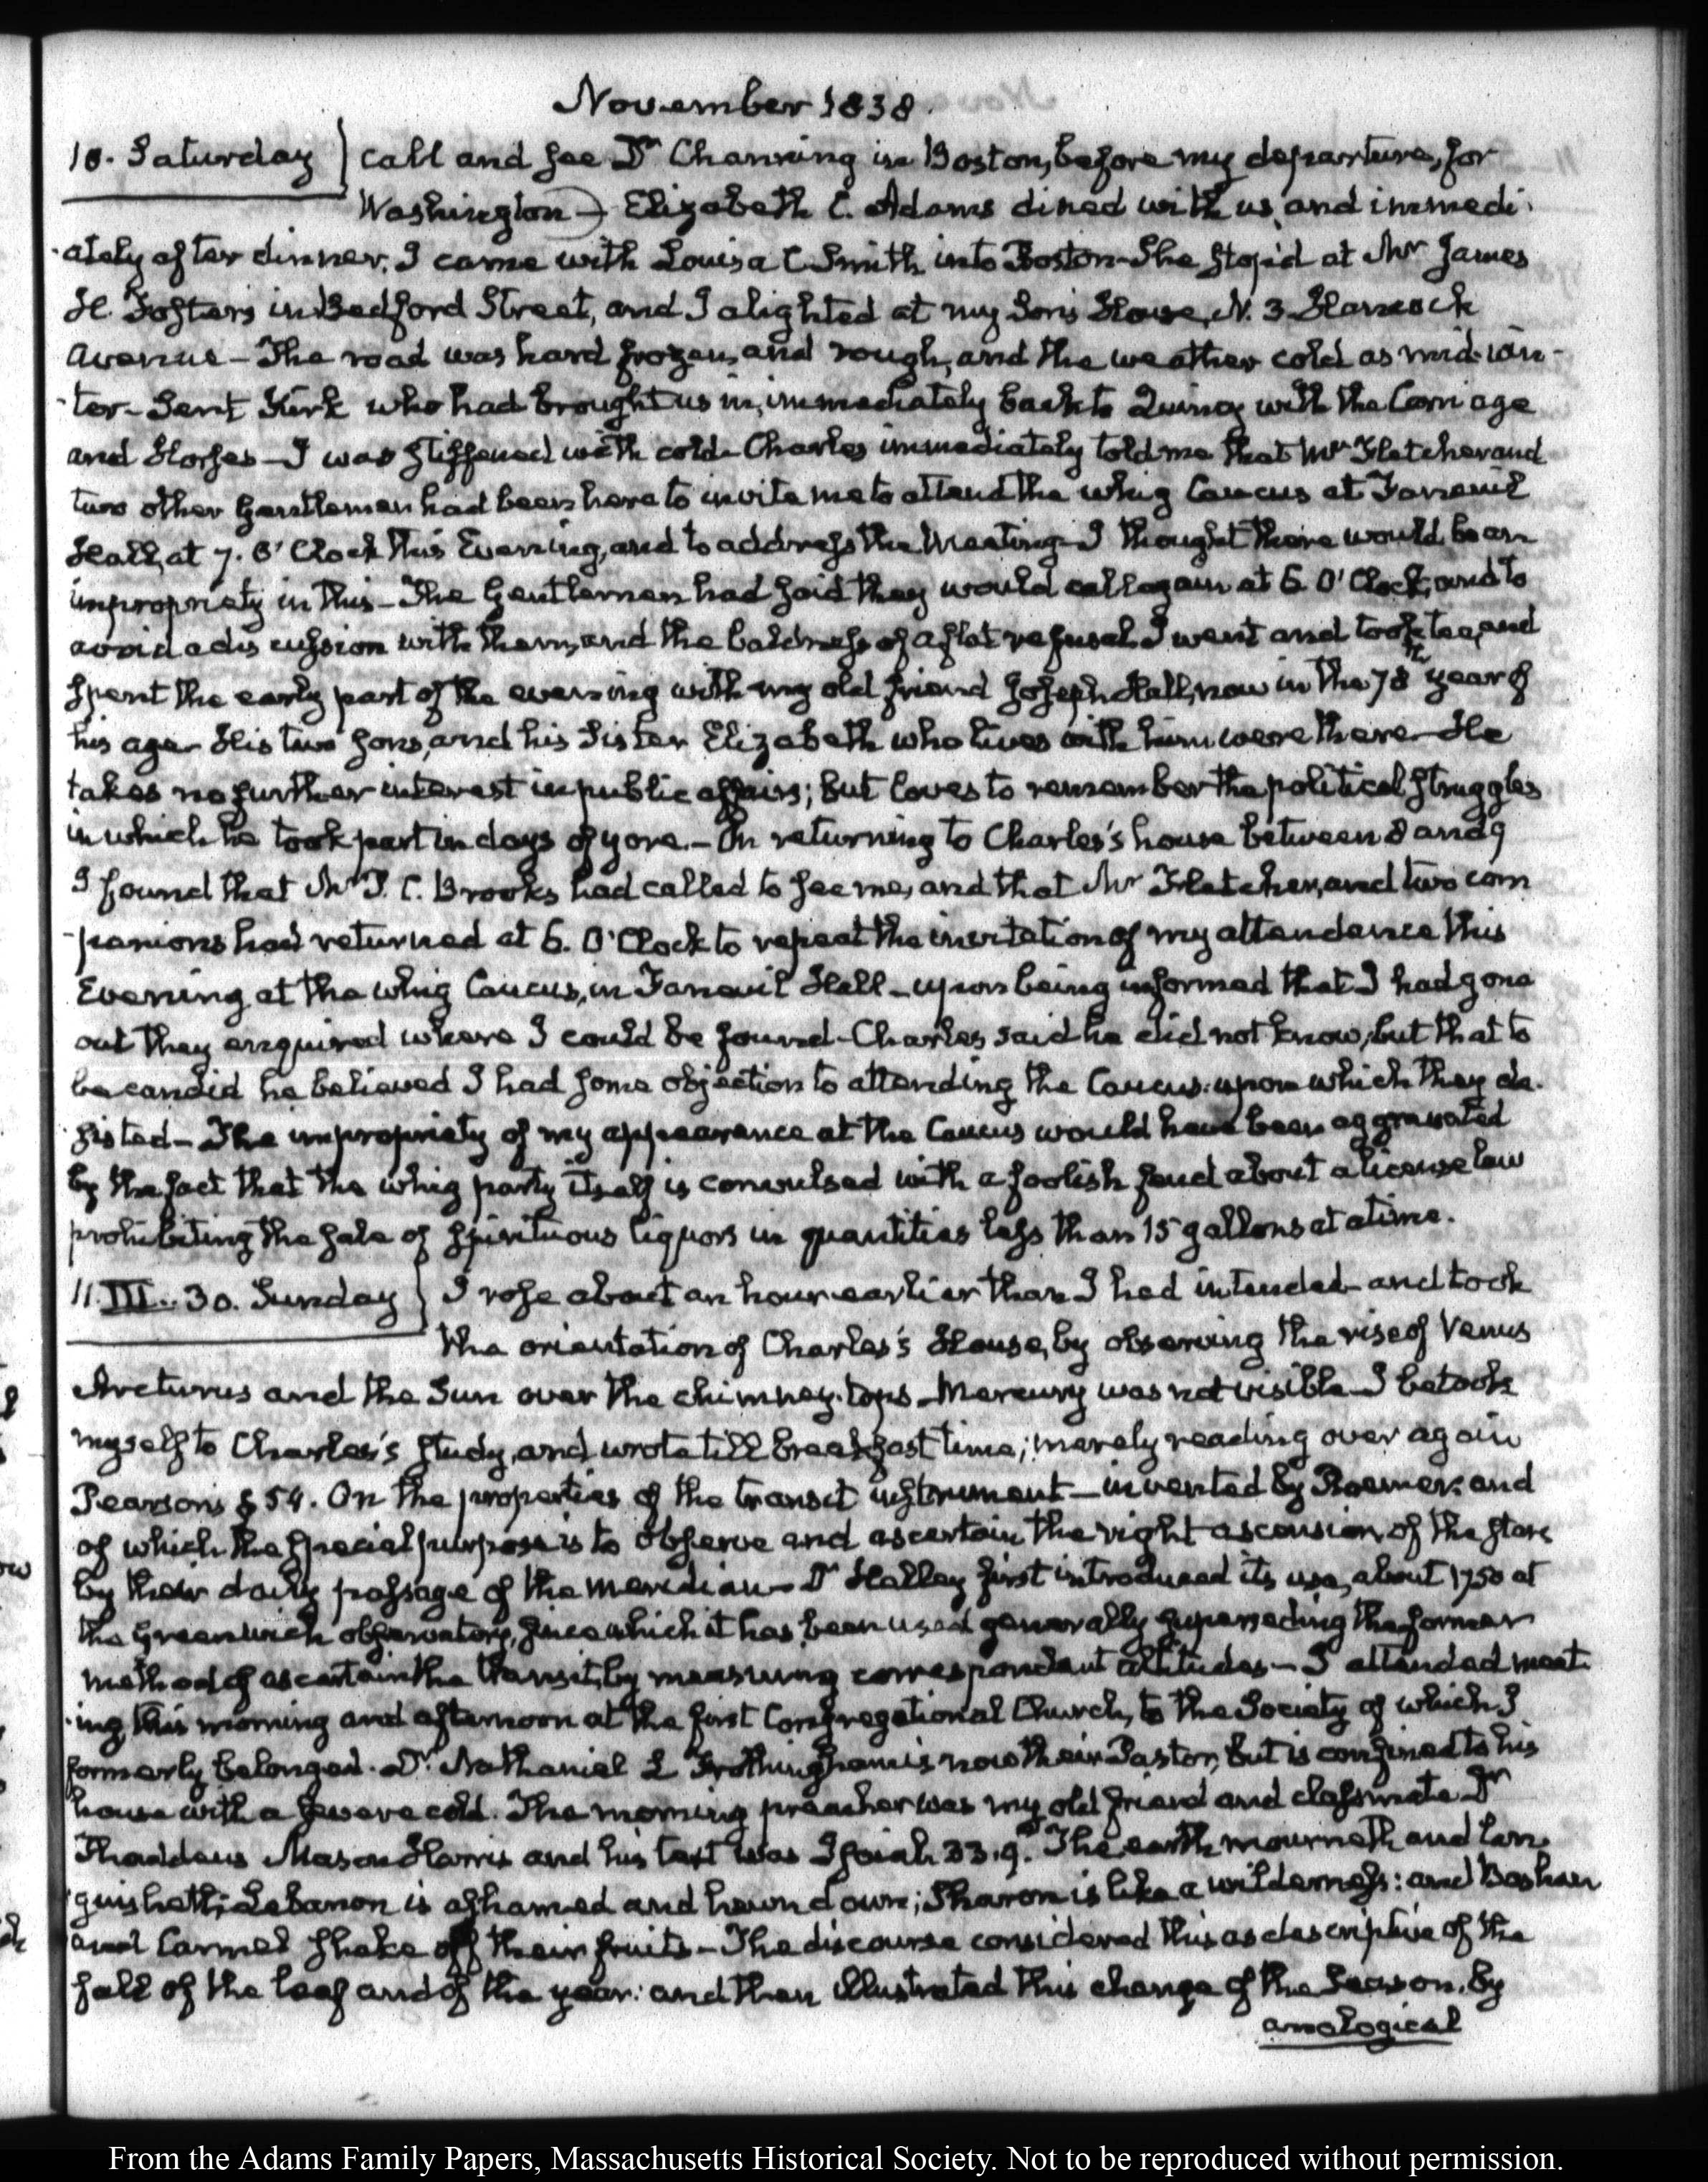 November 1838.
10. Saturday call and see Dr Channing in Boston, before my departure, for
Washington) Elizabeth C. Adams dined with us, and immedi-
ately after dinner, I came with Louisa C Smith into Boston. She stop'd at Mr James
H. Foster's in Bedford Street, and I alighted at my Son's House, N. 3. Hancock
Avenue - The road was hard frozen, and rough, and the weather cold as mid-win-
ter - Sent Kirk who had brought us in, immediately back to Quincy with the Carriage
and Horses - I was stiffened with cold. Charles immediately told me that Mr Fletcher and
two other Gentlemen had been here to invite me to attend the whig Caucus at Faneuil
Hall, at 7. O'Clock this Evening, and to address the Meeting - I thought there would be an
impropriety in this - The Gentlemen had said they would call again at 6. O'Clock, and to
avoid a discussion with them, and the baldness of a flat refusal I went and took tea, and
spent the early part of the evening with my old friend Joseph Hall, now in the 78th year of
his age - His two sons, and his Sister Elizabeth who lives with him were there - He
takes no further interest in public affairs; but loves to remember the political struggles
in which he took part in days of yore. - On returning to Charles's house between 8 and 9
I found that Mr P. C. Brooks had called to see me, and that Mr Fletcher, and two com
-panions had returned at 6. O'Clock to repeat the invitation of my attendance this
Evening at the whig Caucus, in Faneuil Hall - upon being informed that I had gone
out they enquired where I could be found - Charles said he did not know, but that to
be candid he believed I had some objection to attending the Caucus: upon which they de-
sisted - The impropriety of my appearance at the Caucus would have been aggravated
by the fact that the whig party itself is convulsed with a foolish feud about a license law
prohibiting the sale of spirituous liquors in quantities less than 15 gallons at a time.
11. III. 30. Sunday I rose about an hour earlier than I had intended - and took
the orientation of Charles's House, by observing the rise of Venus
Arcturus and the Sun over the chimney-tops - Mercury was not visible - I betook
myself to Charles's study, and wrote till breakfast time; merely reading over again
Pearson's § 54. On the properties of the transit instrument - invented by Roemer: and
of which the special purpose is to observe and ascertain the right ascension of the stars
by their daily passage of the meridian - Dr Halley first introduced its use, about 1750 at
the Greenwich observatory, since which it has been used generally superseding the former
method of ascertain the transit, by measuring correspondent altitudes - I attended meet-
-ing, this morning and afternoon at the first Congregational Church, to the Society of which I
formerly belonged. Dr. Nathaniel L Frothingham is now their Pastor, but is confined to his
house with a severe cold. The morning preacher was my old friend and classmate Dr
Thaddeus Mason Harris and his text was Isaiah 33.9. The earth mourneth and lan-
guisheth; Lebanon is ashamed and hewn down; Sharon is like a wilderness: and Bashan
and Carmel shake off their fruits - The discourse considered this as descriptive of the
fall of the leaf and of the year: and then illustrated this change of the Season, by
analogical
From the Adams Family Papers, Massachusetts Historical Society. Not to be reproduced without permission.